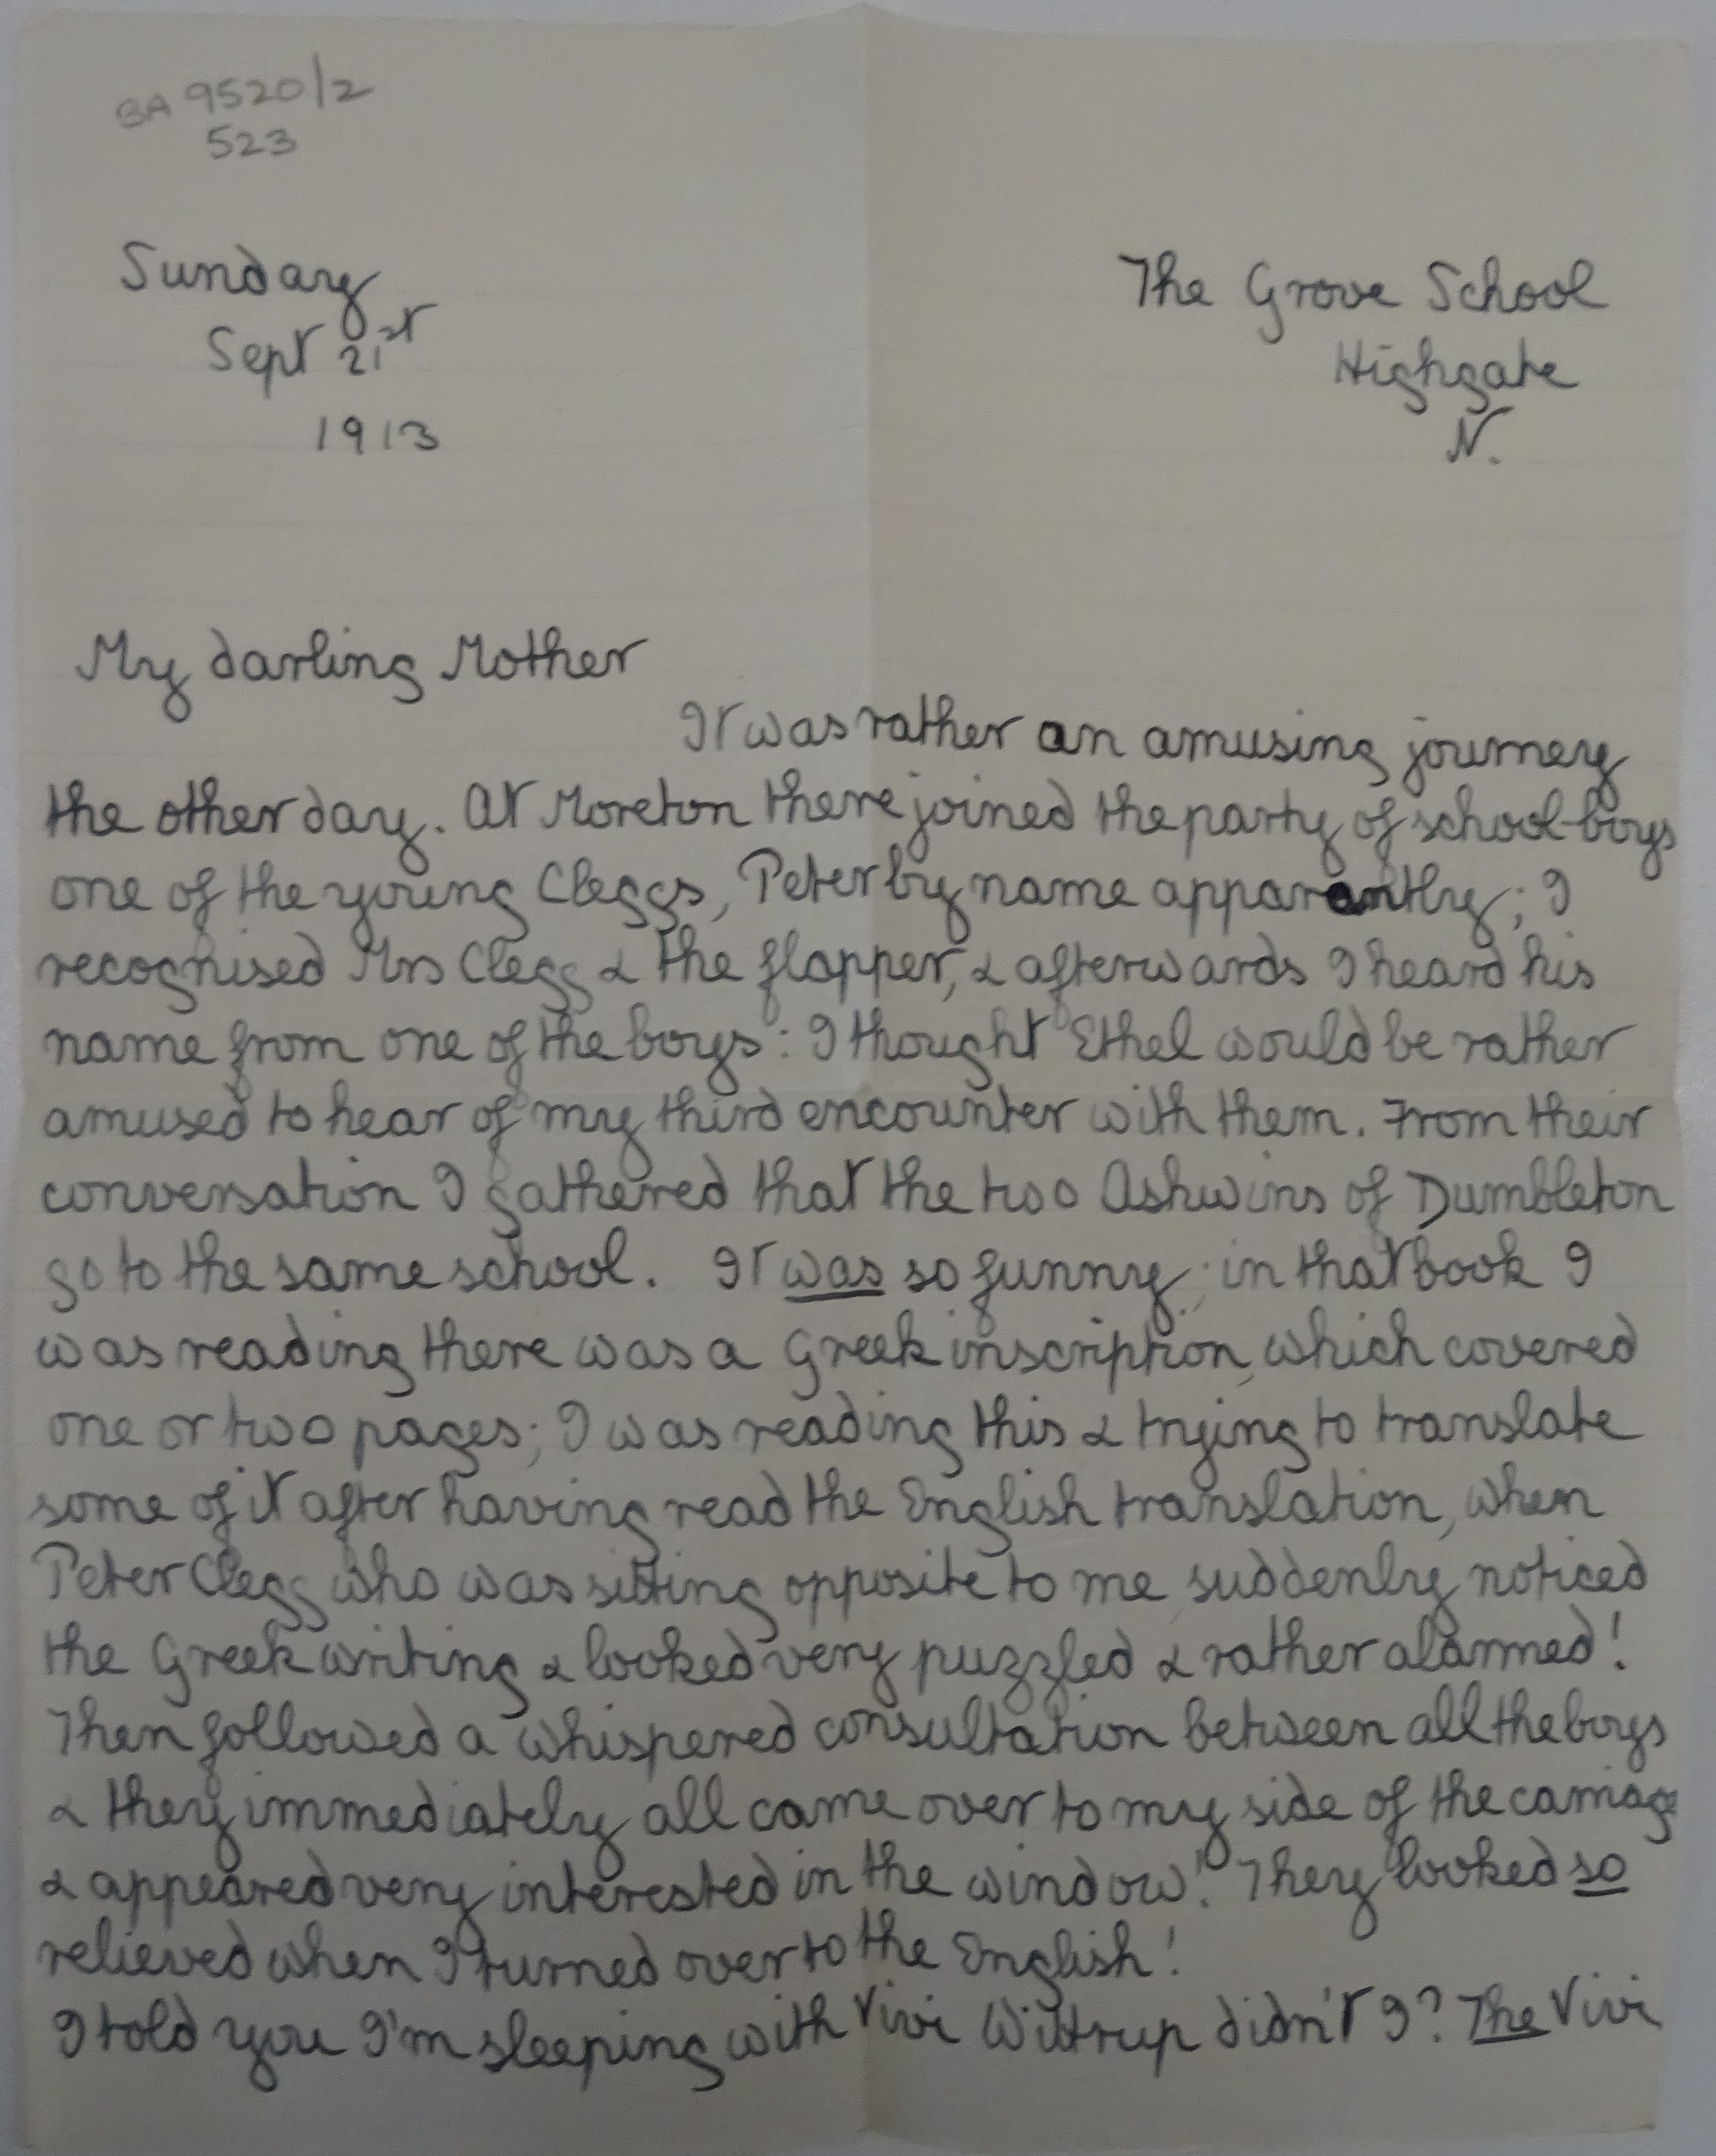 BA 9520/2
523
Sunday
Sept 21st
1913
The Grove School
Highgate
N.
My darling Mother
It was rather an amusing journey
the other day. At Moreton there joined the party of school-boys
one of the young Cleggs, Peter by name apparantly; I
recognised Mrs Clegg & the flapper, & afterwards I heard his
name from one of the boys: I thought Ethel would be rather
amused to hear of my third encounter with them. From their
conversation I gathered that the two Ashwins of Dumbleton
go to the same school. It was so funny; in that book I
was reading there was a Greek inscription, which covered
one or two pages; I was reading this & trying to translate
some of it after having read the English translation, when
Peter Clegg who was sitting opposite to me suddenly noticed
the Greek writing & looked very puzzled & rather alarmed!
Then followed a whispered consultation between all the boys
& they immediately all came over to my side of the carriage
& appeared very interested in the window! They looked so
relieved when I turned over to the English!
I told you I'm sleeping with Vivi Wittrup didn't I? The Vivi